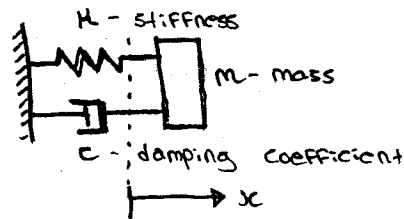 K - stiffness
m - mass
c - damping coefficient
x